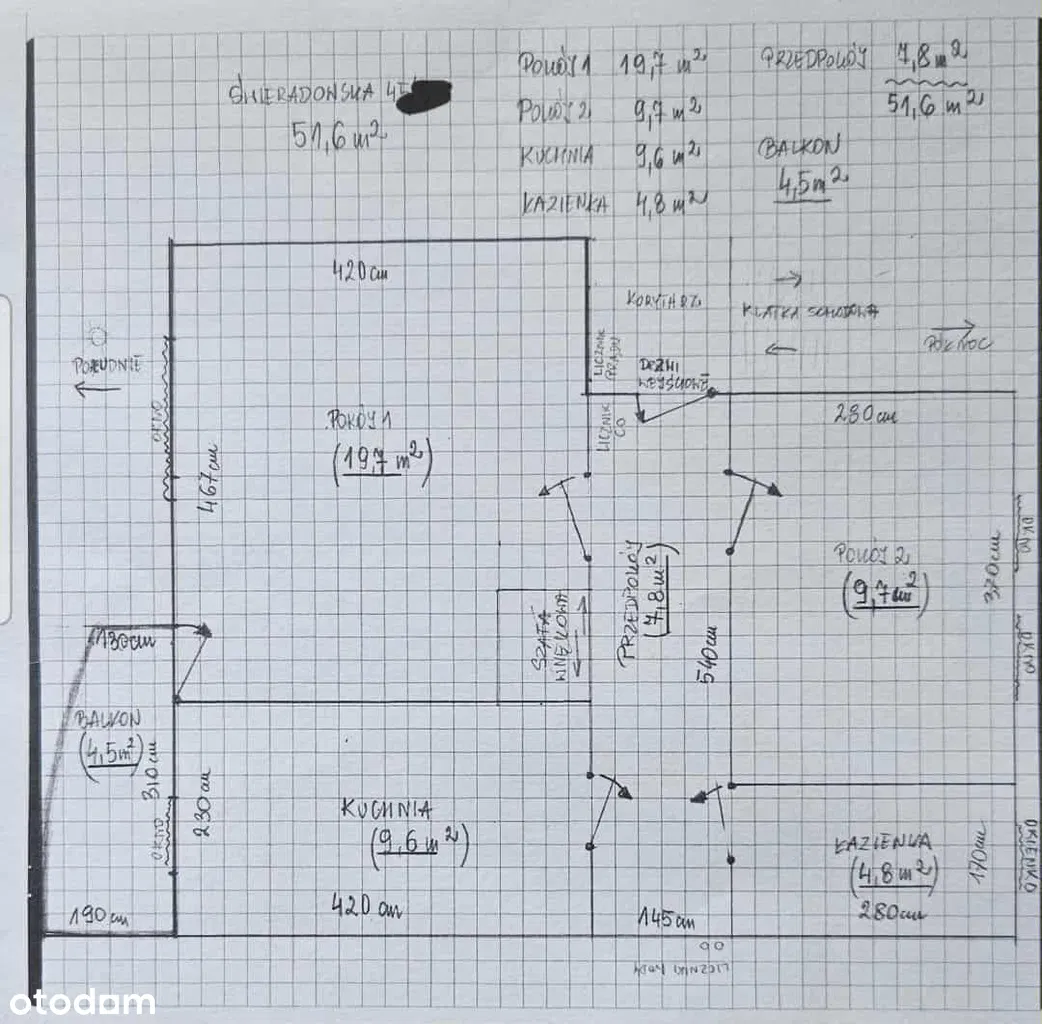 ŚWIERADOWSKA 4E
51,6 m²
POKÓJ 1 19,7 m²
POKÓJ 2 9,7 m²
KUCHNIA 9,6 m²
ŁAZIENKA 4,8 m²
PRZEDPOKÓJ 7,8 m²
51,6 m²
BALKON
4,5 m²
420 cm
POŁUDNIE
OKNO
467 cm
POKÓJ 1
(19,7 m²)
LICZNIK
PRĄDU
KORYTARZ
KLATKA SCHODOWA
PÓŁNOC
DRZWI
WEJŚCIOWE
LICZNIK
CO
280 cm
PRZEDPOKÓJ
(7,8 m²)
540 cm
POKÓJ 2
(9,7 m²)
370 cm
OKNO
OKNO
SZAFA
WNĘKOWA
130 cm
BALKON
(4,5 m²)
310 cm
190 cm
OKNO
230 cm
KUCHNIA
(9,6 m²)
420 cm
145 cm
ŁAZIENKA
(4,8 m²)
280 cm
170 cm
OKIENKO
LICZNIKI WODY
otodom